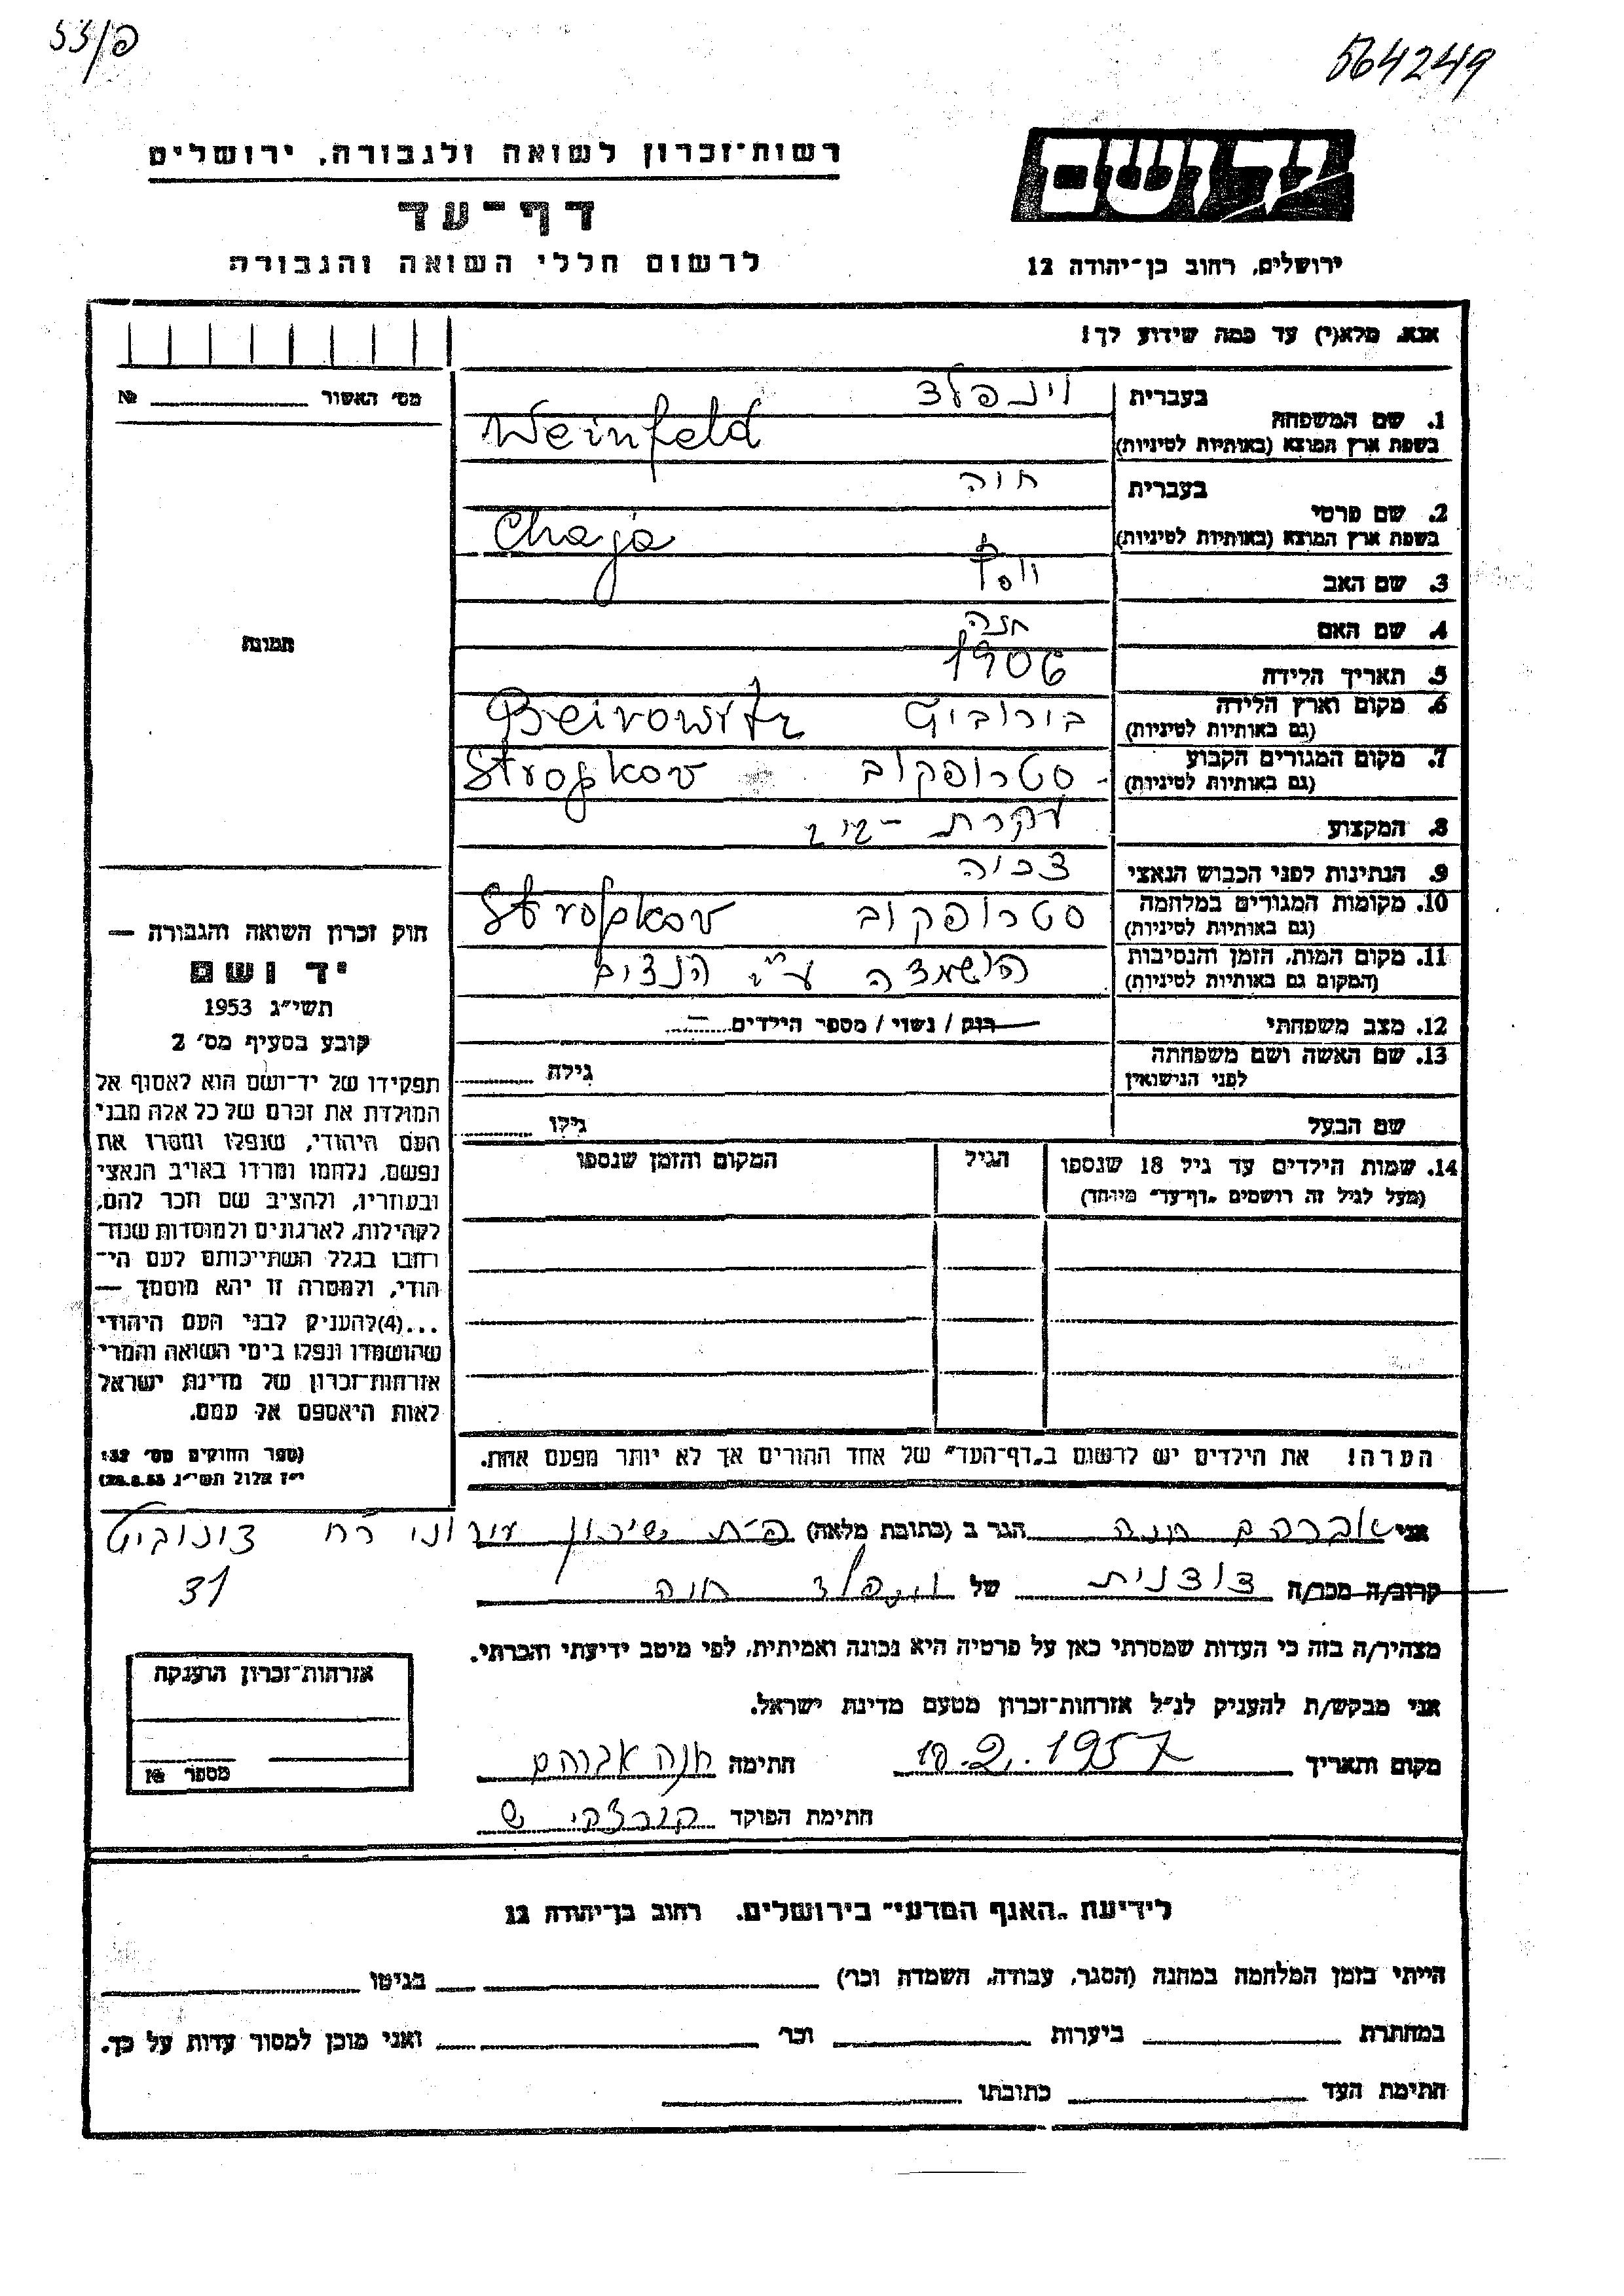 פ/53
564249
יד ושם
רשות־זכרון לשואה ולגבורה, ירושלים
דף־עד
לרשום חללי השואה והגבורה
ירושלים, רחוב בן־יהודה 12
אנא, מלא(י) עד כמה שידוע לך!
מס׳ האשור № 
1. שם המשפחה בעברית וינפלד
בשפת ארץ המוצא (באותיות לטיניות) Weinfeld
2. שם פרטי בעברית חוה
בשפת ארץ המוצא (באותיות לטיניות) Chaja
3. שם האב יוסף
4. שם האם חנה
5. תאריך הלידה 1906
6. מקום וארץ הלידה (גם באותיות לטיניות) בירוביט Beirowitz
7. מקום המגורים הקבוע (גם באותיות לטיניות) סטרופקוב Stropkov
8. המקצוע עקרת-בית
9. הנתינות לפני הכבוש הנאצי צ׳כיה
10. מקומות המגורים במלחמה (גם באותיות לטיניות) סטרופקוב Stropkov
11. מקום המות, הזמן והנסיבות (המקום גם באותיות לטיניות) הושמדה ע״י הנצים
12. מצב משפחתי רווק / נשוי / מספר הילדים –
13. שם האשה ושם משפחתה לפני הנישואין גילה
שם הבעל גילו
14. שמות הילדים עד גיל 18 שנספו הגיל המקום והזמן שנספו
(מעל לגיל זה רושמים „דף־עד״ מיוחד)
הערה! את הילדים יש לרשום ב„דף־העד״ של אחד ההורים אך לא יותר מפעם אחת.
תמונה
חוק זכרון השואה והגבורה —
יד ושם
תשי״ג 1953
קובע בסעיף מס׳ 2
תפקידו של יד־ושם הוא לאסוף אל
המולדת את זכרם של כל אלה מבני
העם היהודי, שנפלו ומסרו את
נפשם, נלחמו ומרדו באויב הנאצי
ובעוזריו, ולהציב שם וזכר להם,
לקהילות, לארגונים ולמוסדות שנח־
רבו בגלל השתייכותם לעם הי־
הודי, ולמטרה זו יהא מוסמך —
...(4) להעניק לבני העם היהודי
שהושמדו ונפלו בימי השואה והמרי
אזרחות־זכרון של מדינת ישראל
לאות היאספם אל עמם.
(ספר החוקים מס׳ 132
י״ז אלול תשי״ג 28.8.53)
אני אברהם חנה הגר ב (כתובת מלאה) פ״ת שיכון עירוני רח
31
קרוב/ה מכר/ה של וינפלד חוה
מצהיר/ה בזה כי העדות שמסרתי כאן על פרטיה היא נכונה ואמיתית, לפי מיטב ידיעתי והכרתי.
אני מבקש/ת להעניק לנ״ל אזרחות־זכרון מטעם מדינת ישראל.
מקום ותאריך 10.2.1957 חתימה חנה אברהם
חתימת הפוקד
אזרחות־זכרון הוענקה
מספר №
לידיעת „האגף המדעי״ בירושלים, רחוב בן־יהודה 12
הייתי בזמן המלחמה במחנה (הסגר, עבודה, השמדה וכר׳) בגיטו
במחתרת ביערות וכר׳ ואני מוכן למסור עדות על כך.
חתימת העד כתובתו